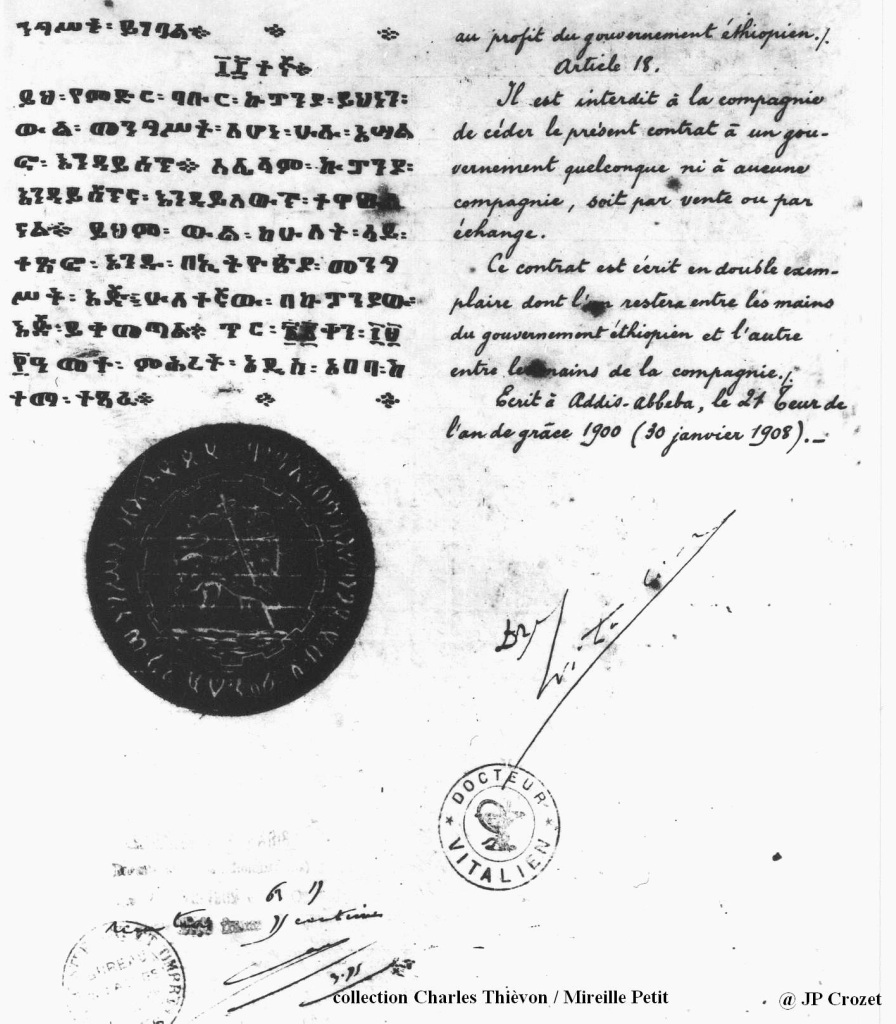 ንግሥት፡ይገባል፨
፲፰ተኛ፨
ይህ፡የምድር፡ባቡር፡ኩፓንያ፡ይህነን፡
ውል፡መንግሥት፡ለሆነ፡ሁሉ፡አሣል
ፎ፡እንዳይሰጥ፨ ለሌላም፡ኩፓንያ፡
እንዳይሸጥና፡እንዳይለውጥ፡ተዋውሏል
ናል፨ ይህም፡ውል፡ከሁለት፡ላይ፡
ተጽፎ፡አንዱ፡በኢትዮጵያ፡መንግ
ሥት፡እጅ፡ሁለተኛው፡በኩፓንያው፡
እጅ፡ይቀመጣል፨ ጥር፡፳፩ቀን፡፲፱
፻ዓመተ፡ምሕረት፡አዲስ፡አበባ፡ከ
ተማ፡ተጻፈ፨
au profit du gouvernement éthiopien./.
Article 18.
Il est interdit à la compagnie
de céder le présent contrat à un gou-
vernement quelconque ni à aucune
compagnie, soit par vente ou par
échange.
Ce contrat est écrit en double exem-
plaire dont l'un restera entre les mains
du gouvernement éthiopien et l'autre
entre les mains de la compagnie./.
Ecrit à Addis-Abbeba, le 21 Teur de
l'an de grâce 1900 (30 janvier 1908)._
DOCTEUR
VITALIEN
centimes
collection Charles Thièvon / Mireille Petit
@ JP Crozet